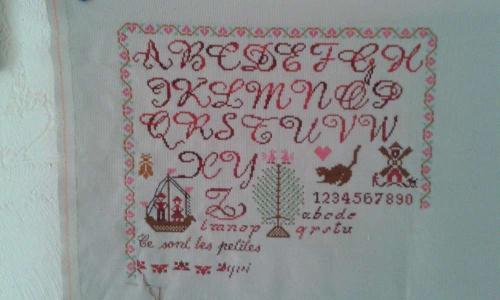 ABCDEFGH
IJKLMNOP
QRSTUVW
XY
Z
1234567890
abcde
qrstu
Ce sont les petites
qui